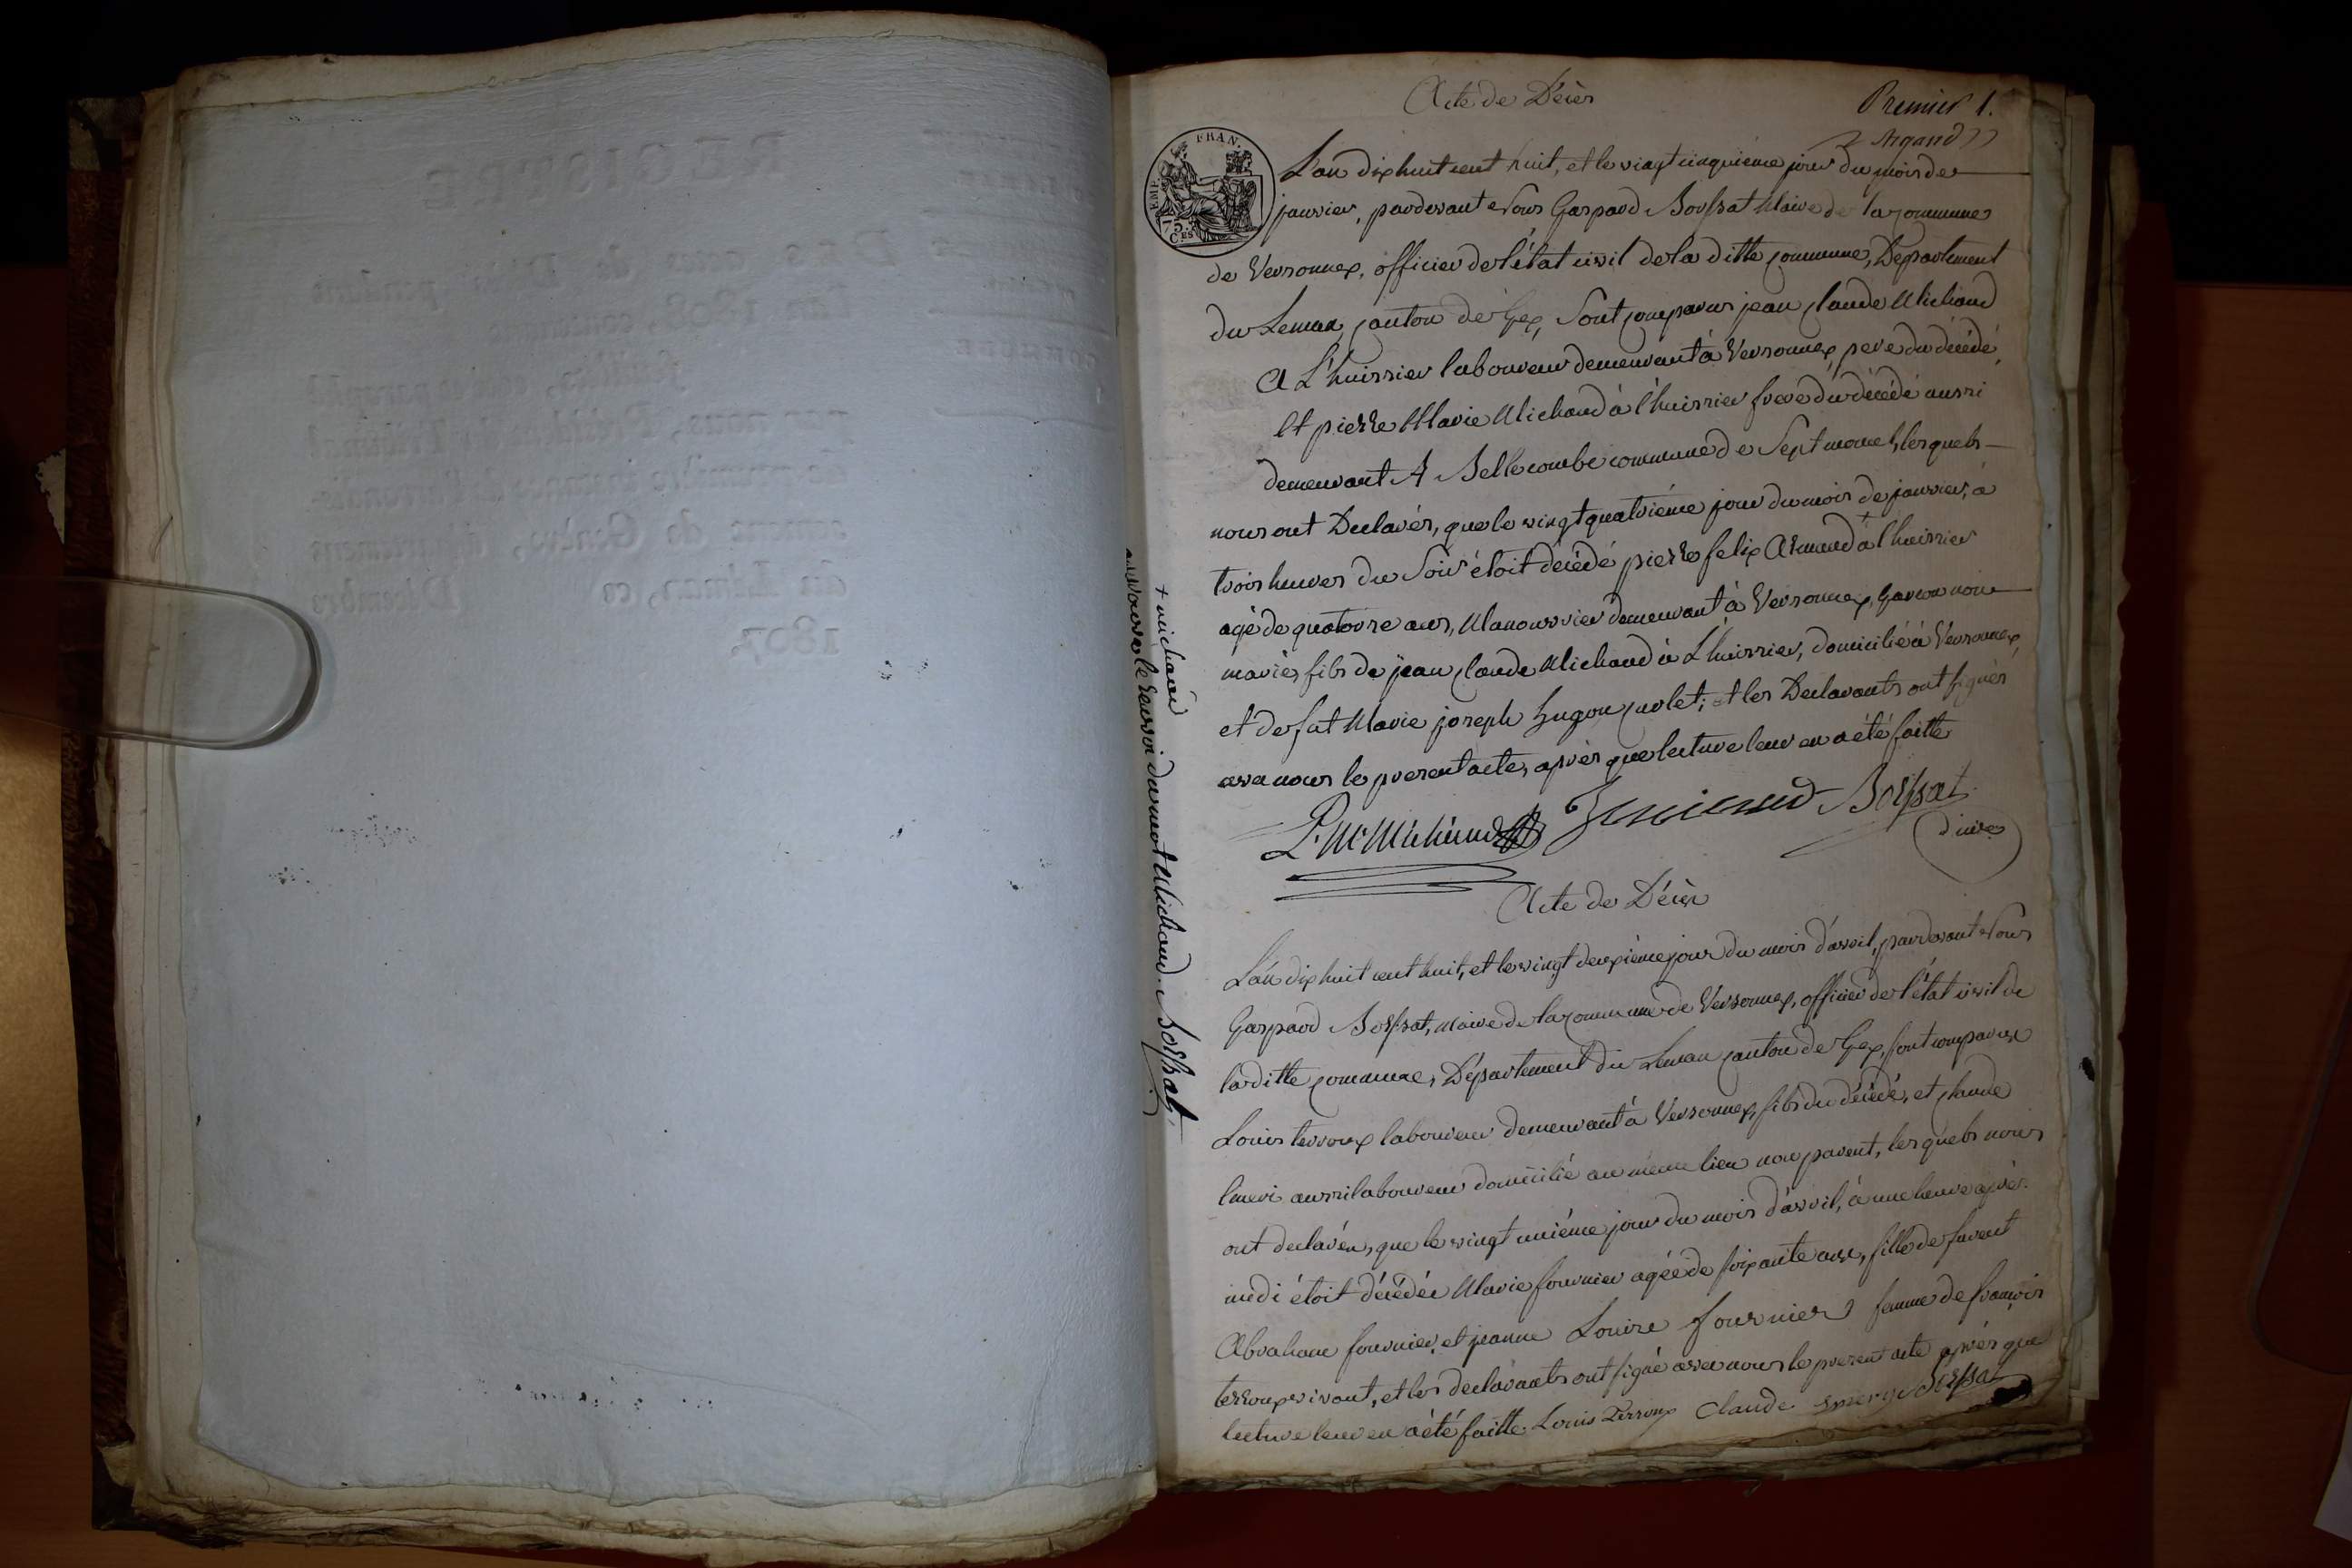 Acte de Décès
Premier 1.
Argand
EMP. FRAN.
75 C.ES
L'an dix huit cent huit, et le vingt cinquième jour du mois de
janvier, pardevant Nous Gaspard Bossat Maire de la commune
de Versonnex, officier de l'état civil de la ditte commune, Département
du Leman canton de Gex, Sont comparus jean claude Michaud
A L'huissier laboureur demeurant à Versonnex pere du décédé,
Et pierre Marie Michaud à l'huissier frere du décédé aussi
demeurant A Bellecombe commune de Septmoncel, lesquels
nous ont Declarés, que le vingt quatrième jour du mois de janvier, à
trois heures du Soir étoit décédé pierre felix Armand + à l'huissier
agé de quatorze ans, Manouvrier demeurant à Versonnex, Garcon non
mariés fils de jean claude Michaud à L'huissier, domicilié à Versonnex,
et de fut Marie joseph hugon ; et les Declarants ont signés
avec nous le present acte, après que lecture leur en a été faitte
P. M. Michaud Bossat
maire
+ michaud
approuve le renvoi du mot Michaud. Bossat
Acte de Décès
L'an dix huit cent huit, et le vingt deuxième jour du mois d'avril, pardevant Nous
Gaspard Bossat, maire de la commune de Versonnex, officier de l'état civil de
la ditte commune, Département du Leman canton de Gex, sont comparus
Louis terroux laboureur demeurant à Versonnex, fils du décédé, et claude
Emeri aussi laboureur domicilié au meme lieu non parent, lesquels nous
ont declarés, que le vingt unième jour du mois d'avril, à une heure après
midi étoit décédée Marie fournier agée de soixante ans, fille de furent
Abraham fournier, et jeanne Louise fournier femme de françois
terroux vivant, et les declarants ont signé avec nous le present acte après que
lecture leur en a été faitte. Louis Terroux Claude Emery Bossat